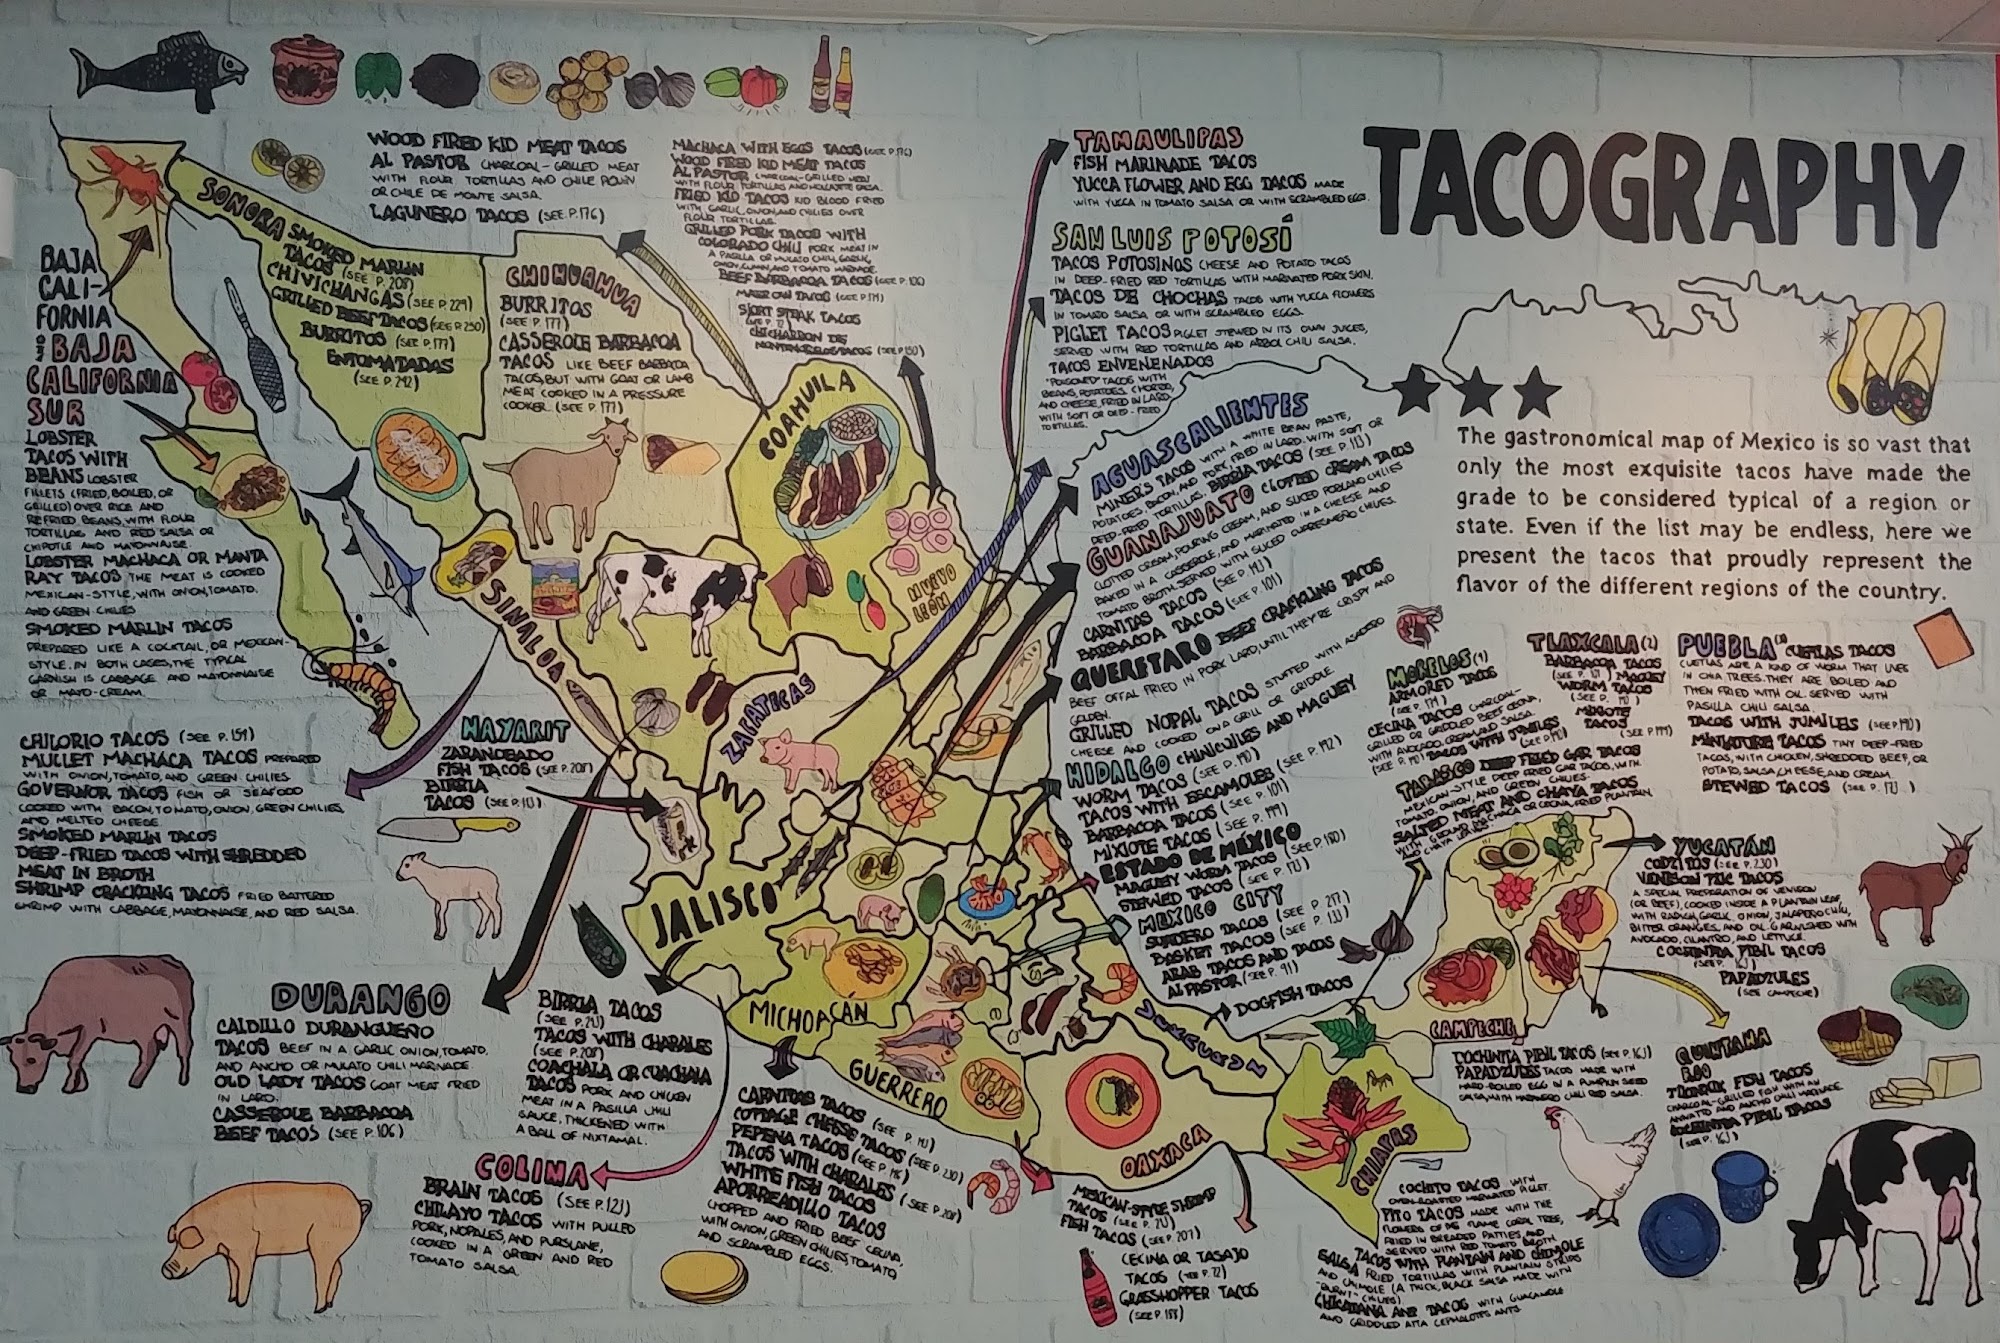 TACOGRAPHY
The gastronomical map of Mexico is so vast that
only the most exquisite tacos have made the
grade to be considered typical of a region or
state. Even if the list may be endless, here we
present the tacos that proudly represent the
flavor of the different regions of the country.
WOOD FIRED KID MEAT TACOS
AL PASTOR CHARCOAL-GRILLED MEAT
WITH FLOUR TORTILLAS AND CHILE PIQUIN
OR CHILE DE MONTE SALSA.
LAGUNERO TACOS (SEE P.176)
MACHACA WITH EGGS TACOS (SEE P.176)
WOOD FIRED KID MEAT TACOS
AL PASTOR CHARCOAL-GRILLED MEAT
WITH FLOUR TORTILLAS AND MOLCAJETE SALSA.
FRIED KID TACOS KID BLOOD FRIED
WITH GARLIC, ONION, AND CHILIES OVER
FLOUR TORTILLAS.
GRILLED PORK TACOS WITH
COLORADO CHILI PORK MEAT IN
A PASILLA OR MULATO CHILI, GARLIC,
ONION, CUMIN, AND TOMATO MARINADE.
BEEF BARBACOA TACOS
MARROW TACOS
SHORT STEAK TACOS
CHICHARRON DE
MONTEMORELOS TACOS
TAMAULIPAS
FISH MARINADE TACOS
YUCCA FLOWER AND EGG TACOS MADE
WITH YUCCA IN TOMATO SALSA OR WITH SCRAMBLED EGGS.
SAN LUIS POTOSÍ
TACOS POTOSINOS CHEESE AND POTATO TACOS
IN DEEP-FRIED RED TORTILLAS WITH MARINATED PORK SKIN.
TACOS DE CHOCHAS TACOS WITH YUCCA FLOWERS
IN TOMATO SALSA OR WITH SCRAMBLED EGGS.
PIGLET TACOS PIGLET STEWED IN ITS OWN JUICES,
SERVED WITH RED TORTILLAS AND ARBOL CHILI SALSA.
TACOS ENVENENADOS
"POISONED" TACOS WITH
BEANS, POTATOES, CHORIZO,
AND CHEESE, FRIED IN LARD
WITH SOFT OR DEEP-FRIED
TORTILLAS.
BAJA
CALI-
FORNIA
BAJA
CALIFORNIA
SUR
LOBSTER
TACOS WITH
BEANS LOBSTER
FILLETS (FRIED, BOILED, OR
GRILLED) OVER RICE AND
REFRIED BEANS, WITH FLOUR
TORTILLAS AND RED SALSA OR
CHIPOTLE AND MAYONNAISE.
LOBSTER MACHACA OR MANTA
RAY TACOS THE MEAT IS COOKED
MEXICAN-STYLE, WITH ONION, TOMATO,
AND GREEN CHILIES
SMOKED MARLIN TACOS
PREPARED LIKE A COCKTAIL, OR MEXICAN-
STYLE. IN BOTH CASES, THE TYPICAL
GARNISH IS CABBAGE AND MAYONNAISE
OR MAYO-CREAM.
SONORA SMOKED MARLIN
TACOS (SEE P. 208)
CHIVICHANGAS (SEE P. 229)
GRILLED BEEF TACOS (SEE P. 250)
BURRITOS (SEE P. 177)
ENTOMATADAS
(SEE P. 242)
CHIHUAHUA
BURRITOS
(SEE P. 177)
CASSEROLE BARBACOA
TACOS LIKE BEEF BARBACOA
TACOS, BUT WITH GOAT OR LAMB
MEAT COOKED IN A PRESSURE
COOKER. (SEE P. 177)
COAHUILA
NUEVO
LEÓN
SINALOA
ZACATECAS
CHILORIO TACOS (SEE P. 159)
MULLET MACHACA TACOS PREPARED
WITH ONION, TOMATO, AND GREEN CHILIES
GOVERNOR TACOS FISH OR SEAFOOD
COOKED WITH BACON, TOMATO, ONION, GREEN CHILIES,
AND MELTED CHEESE.
SMOKED MARLIN TACOS
DEEP-FRIED TACOS WITH SHREDDED
MEAT IN BROTH
SHRIMP CRACKLING TACOS FRIED BATTERED
SHRIMP WITH CABBAGE, MAYONNAISE, AND RED SALSA.
NAYARIT
ZARANDEADO
FISH TACOS (SEE P. 208)
BIRRIA
TACOS
AGUASCALIENTES
MINER'S TACOS WITH A WHITE BEAN PASTE,
POTATOES, BACON, AND PORK, FRIED IN LARD, WITH SOFT OR
DEEP-FRIED TORTILLAS. BIRRIA TACOS
GUANAJUATO CLOTTED CREAM TACOS
CLOTTED CREAM, POURING CREAM, AND SLICED POBLANO CHILIES
BAKED IN A CASSEROLE, AND MARINATED IN A CHEESE AND
TOMATO BROTH, SERVED WITH SLICED CUARESMEÑO CHILIES.
CARNITAS TACOS
BARBACOA TACOS (SEE P. 101)
QUERETARO BEEF CRACKLING TACOS
BEEF OFFAL FRIED IN PORK LARD, UNTIL THEY'RE CRISPY AND
GOLDEN.
GRILLED NOPAL TACOS STUFFED WITH ASADERO
CHEESE AND COOKED ON A GRILL OR GRIDDLE.
HIDALGO CHINICUILES AND MAGUEY
WORM TACOS (SEE P. 190)
TACOS WITH ESCAMOLES (SEE P. 192)
BARBACOA TACOS (SEE P. 101)
MIXIOTE TACOS (SEE P. 199)
ESTADO DE MEXICO
MAGUEY WORM TACOS
STEWED TACOS
MEXICO CITY
SUADERO TACOS (SEE P. 217)
BASKET TACOS (SEE P. 133)
ARAB TACOS AND TACOS
AL PASTOR (SEE P. 91)
MORELOS
ARMORED TACOS
CECINA TACOS CHARCOAL-
GRILLED OR GRIDDLED BEEF CECINA,
WITH AVOCADO, CREAM, AND SALSA.
TACOS WITH JUMILES
TABASCO DEEP FRIED GAR TACOS
MEXICAN-STYLE DEEP FRIED GAR TACOS, WITH
TOMATO, ONION, AND GREEN CHILIES.
SALTED MEAT AND CHAYA TACOS
TLAXCALA
BARBACOA TACOS
MAGUEY
WORM TACOS
MIXIOTE
TACOS
PUEBLA CUETLAS TACOS
CUETLAS ARE A KIND OF WORM THAT LIVES
IN OHA TREES. THEY ARE BOILED AND
THEN FRIED WITH OIL. SERVED WITH
PASILLA CHILI SALSA.
TACOS WITH JUMILES (SEE P. 190)
MINIATURE TACOS TINY DEEP-FRIED
TACOS, WITH CHICKEN, SHREDDED BEEF, OR
POTATO, SALSA, CHEESE, AND CREAM.
STEWED TACOS
YUCATÁN
CODZITOS (SEE P. 230)
VENISON TZIC TACOS
A SPECIAL PREPARATION OF VENISON
(OR BEEF), COOKED INSIDE A PLANTAIN LEAF,
WITH RADISH, GARLIC, ONION, JALAPEÑO CHILI,
BITTER ORANGES, AND OIL. GARNISHED WITH
AVOCADO, CILANTRO, AND LETTUCE.
COCHINITA PIBIL TACOS
PAPADZULES
(SEE CAMPECHE)
DOGFISH TACOS
VERACRUZ
CAMPECHE
COCHINITA PIBIL TACOS
PAPADZULES TACOS MADE WITH
HARD-BOILED EGG IN A PUMPKIN SEED
SALSA, WITH HABANERO CHILI RED SALSA.
QUINTANA
ROO
FISH TACOS
CHARCOAL-GRILLED FISH WITH AN
ANNATTO AND ANCHO CHILI MARINADE.
COCHINITA PIBIL TACOS
JALISCO
MICHOACÁN
GUERRERO
OAXACA
CHIAPAS
DURANGO
CALDILLO DURANGUEÑO
TACOS BEEF IN A GARLIC, ONION, TOMATO,
AND ANCHO OR MULATO CHILI MARINADE.
OLD LADY TACOS GOAT MEAT FRIED
IN LARD.
CASSEROLE BARBACOA
BEEF TACOS (SEE P. 106)
BIRRIA TACOS
TACOS WITH CHARALES
(SEE P. 208)
COACHALA OR CUACHALA
TACOS PORK AND CHICKEN
MEAT IN A PASILLA CHILI
SAUCE, THICKENED WITH
A BALL OF NIXTAMAL.
COLIMA
BRAIN TACOS (SEE P. 121)
CHILAYO TACOS WITH PULLED
PORK, NOPALES, AND PURSLANE,
COOKED IN A GREEN AND RED
TOMATO SALSA.
CARNITAS TACOS
COTTAGE CHEESE TACOS (SEE P. 230)
PEPENA TACOS
TACOS WITH CHARALES (SEE P. 208)
WHITE FISH TACOS
APORREADILLO TACOS
CHOPPED AND FRIED BEEF CECINA,
WITH ONION, GREEN CHILIES, TOMATO,
AND SCRAMBLED EGGS.
MEXICAN-STYLE SHRIMP
TACOS
FISH TACOS (SEE P. 207)
CECINA OR TASAJO
TACOS
GRASSHOPPER TACOS
(SEE P. 188)
COCHITO TACOS WITH
OVEN-ROASTED MARINATED PIGLET.
PITO TACOS MADE WITH THE
FLOWERS OF THE FLAME CORAL TREE,
FRIED IN BREADED PATTIES, AND
SERVED WITH RED TOMATO BROTH.
TACOS WITH PLANTAIN AND CHIMOLE
SALSA FRIED TORTILLAS WITH PLANTAIN STRIPS
AND CHIMOLE (A THICK, BLACK SALSA MADE WITH
"BURNT" CHILIES)
CHICATANA ANT TACOS WITH GUACAMOLE
AND GRIDDLED ATTA CEPHALOTES ANTS.